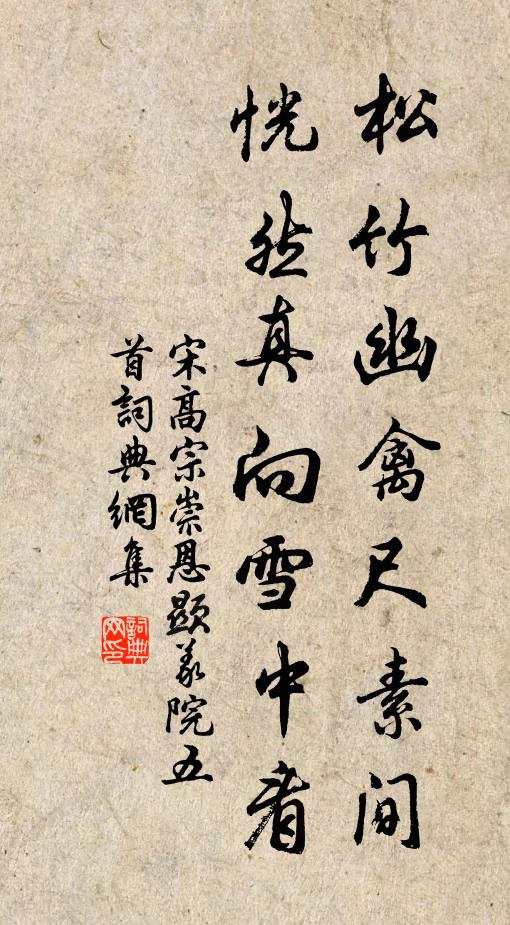 松竹幽禽尺素间
恍然真向雪中看
宋高宗崇恩顯義院五
首詞典網集
詞典
网印